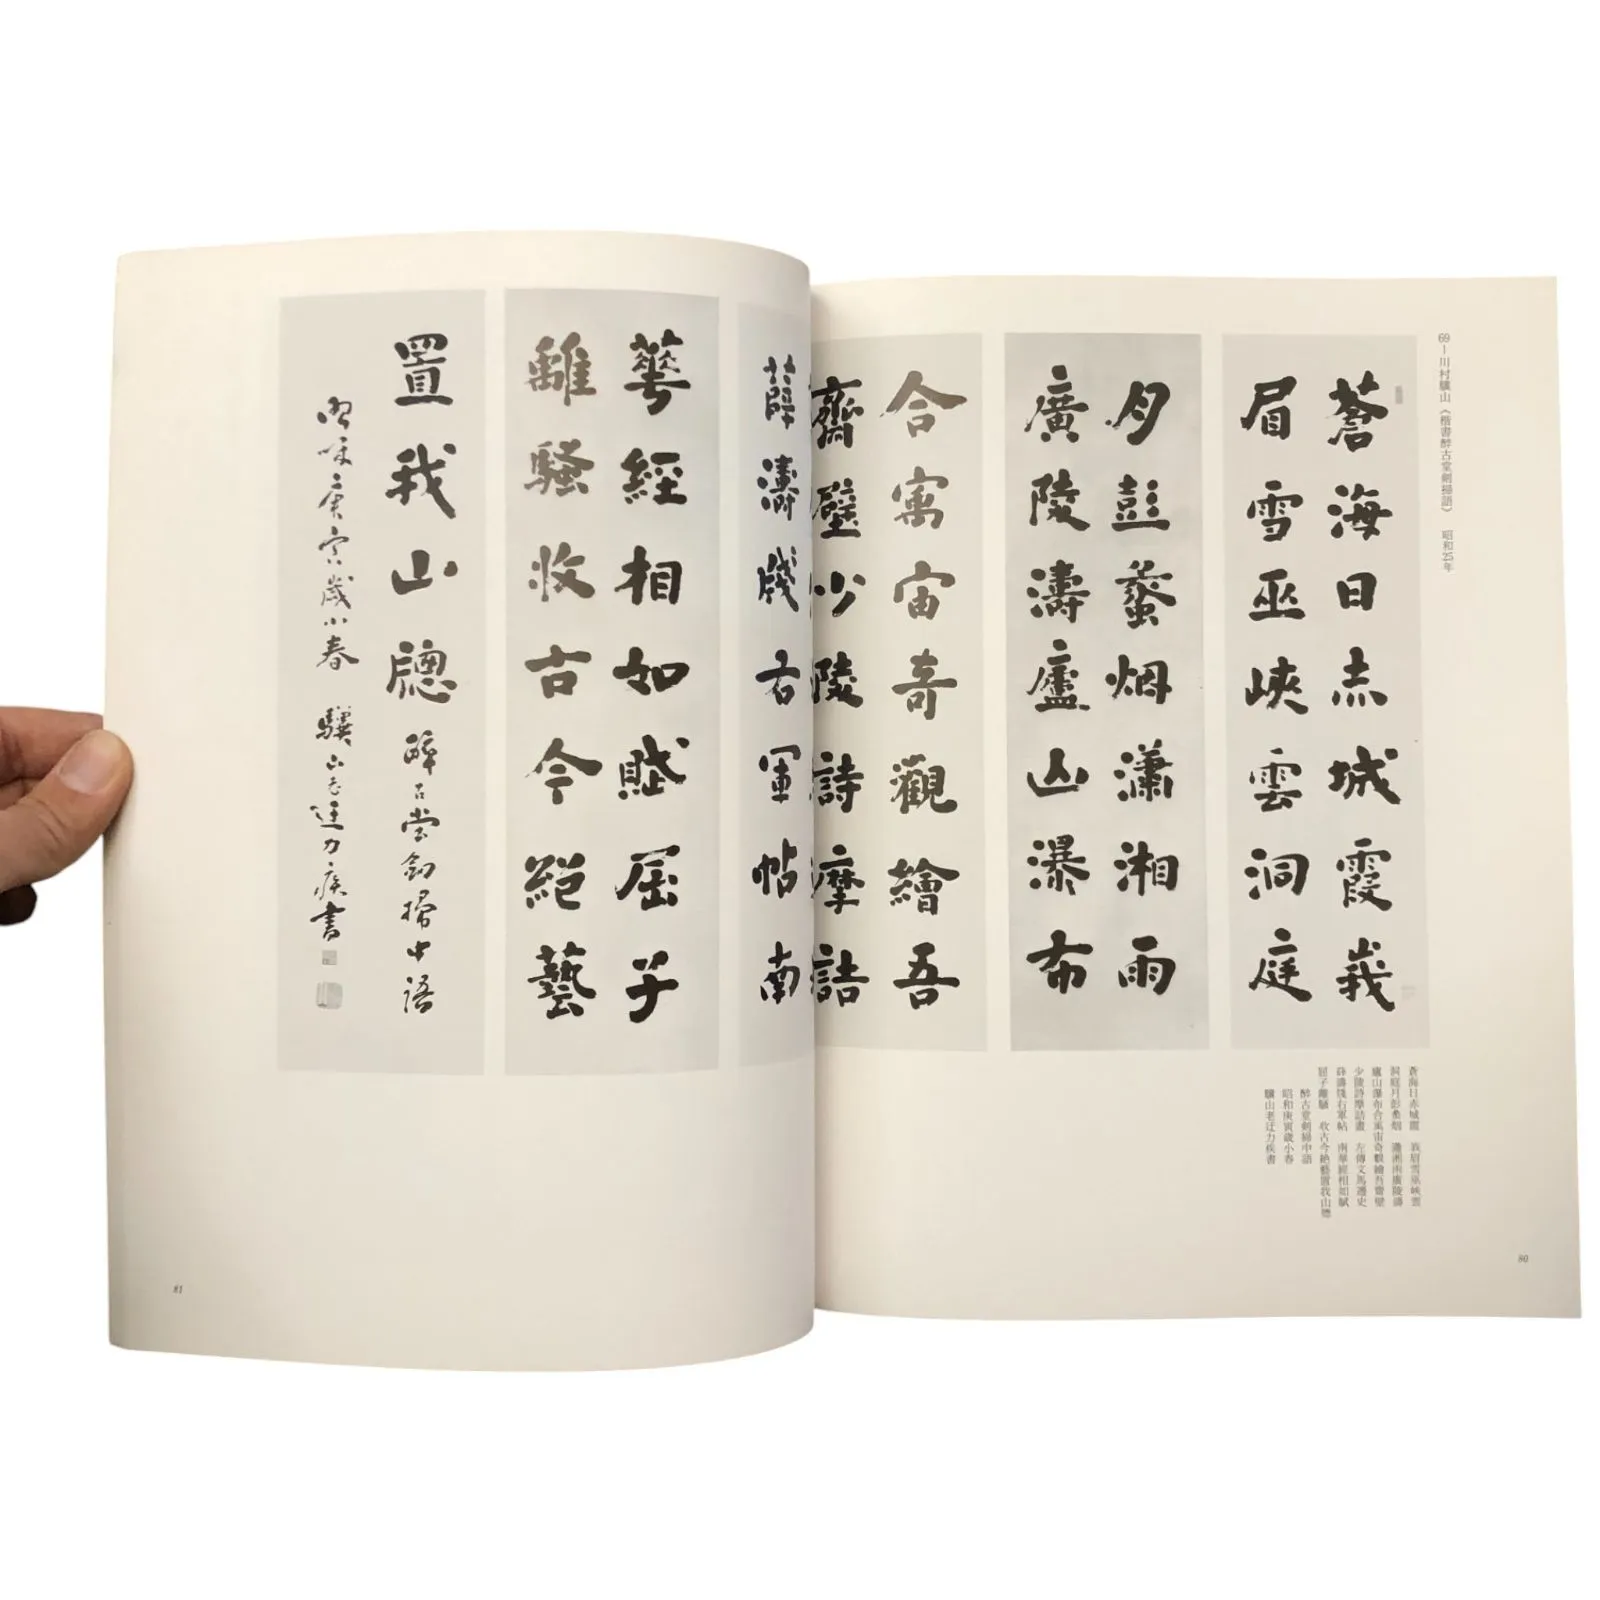 69—川村驥山《楷書酔古堂剣掃語》 昭和25年
蒼海日赤城霞峩
眉雪巫峽雲洞庭
月彭蠡烟瀟湘雨
廣陵濤廬山瀑布
合寓宙奇觀繪吾
齋壁少陵詩摩詰
蒼海日赤城霞 峩眉雪巫峡雲
洞庭月彭蠡烟 瀟湘雨廣陵濤
廬山瀑布合寓宙奇觀繪吾齋壁
少陵詩摩詰畫 左傳文馬遷史
薛濤牋右軍帖 南華經相如賦
屈子離騒 收古今絶藝置我山牕
酔古堂剣掃中語
昭和庚寅歳小春
驥山老迂力疾書
80
薛濤牋右軍帖南
華經相如賦屈子
離騷收古今絕藝
置我山牕 酔古堂劍掃中語
昭和庚寅歳小春 驥山老迂力疾書
81